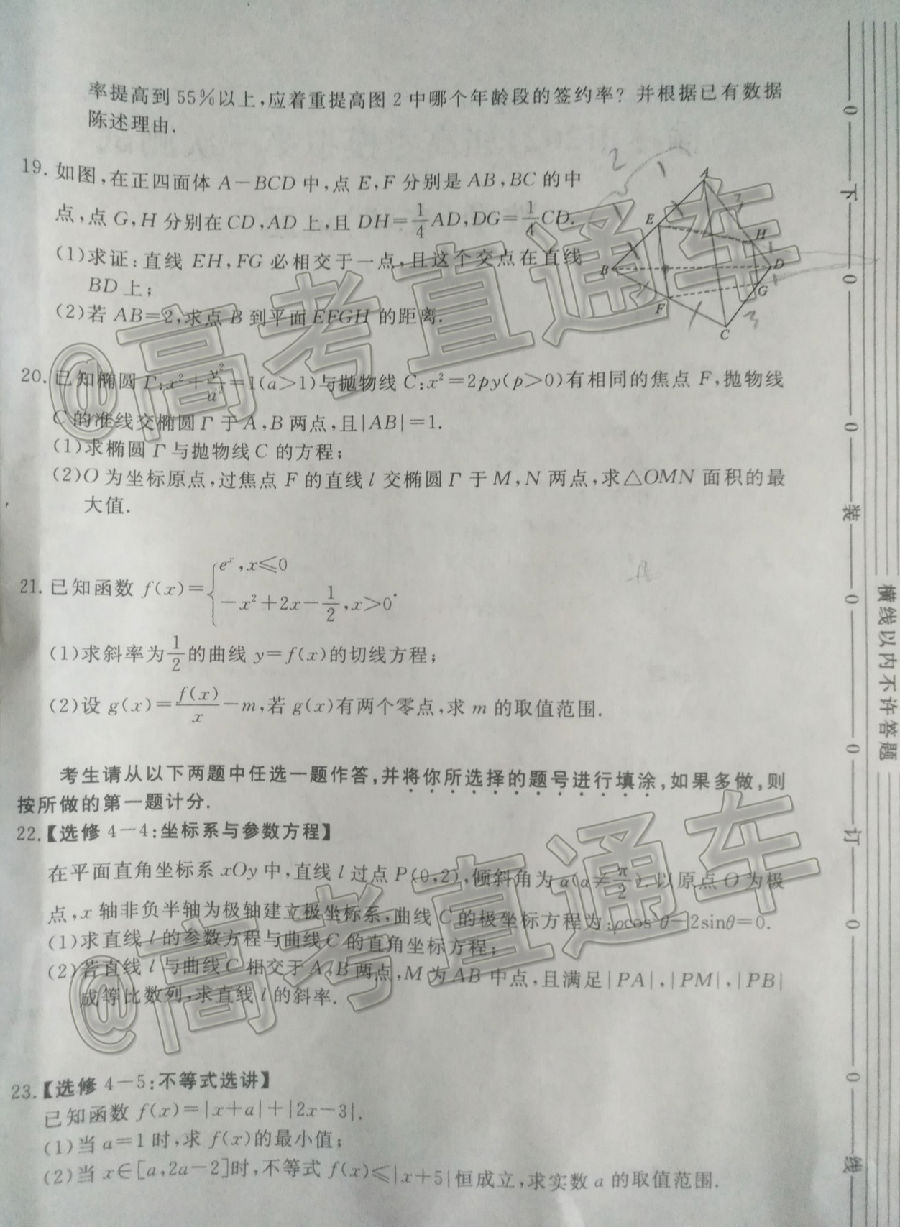 率提高到55%以上,应着重提高图2中哪个年龄段的签约率?并根据已有数据
陈述理由.
19. 如图,在正四面体A-BCD中,点E,F分别是AB,BC的中
点,点G,H分别在CD,AD上,且DH=1/4AD,DG=1/4CD.
(1)求证:直线EH,FG必相交于一点,且这个交点在直线
BD上;
(2)若AB=2,求点B到平面EFGH的距离.
2
1
A
3
E
H
1
B
D
1
G
F
C
3
20. 已知椭圆Γ:x²+y²/a²=1(a>1)与抛物线C:x²=2py(p>0)有相同的焦点F,抛物线
C的准线交椭圆Γ于A,B两点,且|AB|=1.
(1)求椭圆Γ与抛物线C的方程;
(2)O为坐标原点,过焦点F的直线l交椭圆Γ于M,N两点,求△OMN面积的最
大值.
21. 已知函数f(x)={eˣ,x≤0
-x²+2x-1/2,x>0.
(1)求斜率为1/2的曲线y=f(x)的切线方程;
(2)设g(x)=f(x)/x-m,若g(x)有两个零点,求m的取值范围.
考生请从以下两题中任选一题作答,并将你所选择的题号进行填涂,如果多做,则
按所做的第一题计分.
22.【选修4-4:坐标系与参数方程】
在平面直角坐标系xOy中,直线l过点P(0,2),倾斜角为α(α≠π/2).以原点O为极
点,x轴非负半轴为极轴建立极坐标系,曲线C的极坐标方程为:ρcos²θ-2sinθ=0.
(1)求直线l的参数方程与曲线C的直角坐标方程;
(2)若直线l与曲线C相交于A,B两点,M为AB中点,且满足|PA|,|PM|,|PB|
成等比数列,求直线l的斜率.
23.【选修4-5:不等式选讲】
已知函数f(x)=|x+a|+|2x-3|.
(1)当a=1时,求f(x)的最小值;
(2)当x∈[a,2a-2]时,不等式f(x)≤|x+5|恒成立,求实数a的取值范围.
@高考直通车
@高考直通车
0 下 0 0 装 0 0 订 0 0 线
横线以内不许答题